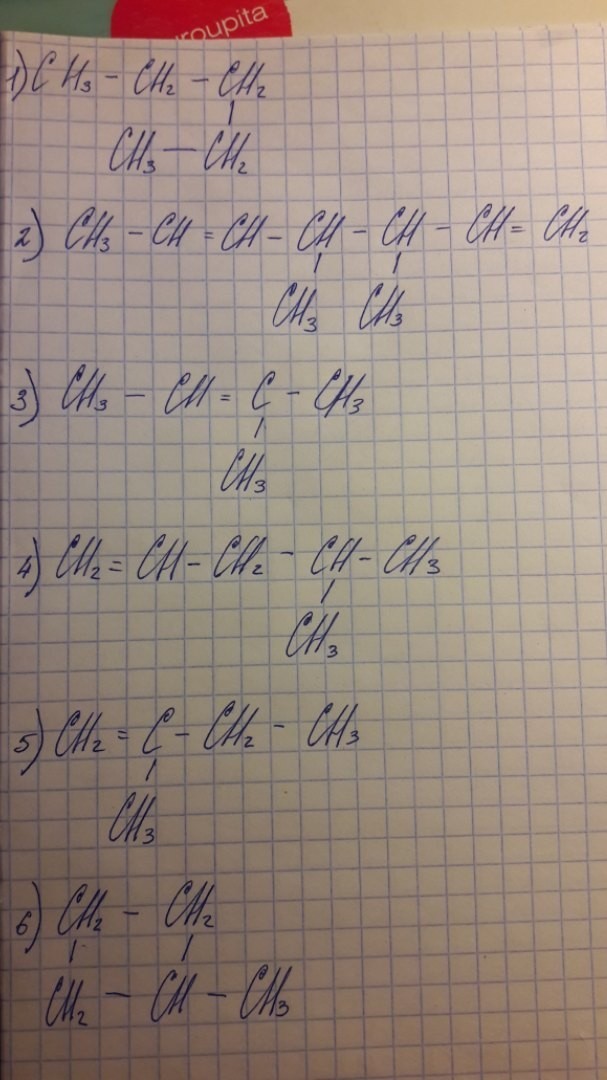 roupita
1) CH₃ - CH₂ - CH₂
|
CH₃ - CH₂
2) CH₃ - CH = CH - CH - CH - CH = CH₂
| |
CH₃ CH₃
3) CH₃ - CH = C - CH₃
|
CH₃
4) CH₂ = CH - CH₂ - CH - CH₃
|
CH₃
5) CH₂ = C - CH₂ - CH₃
|
CH₃
6) CH₂ - CH₂
| |
CH₂ - CH - CH₃